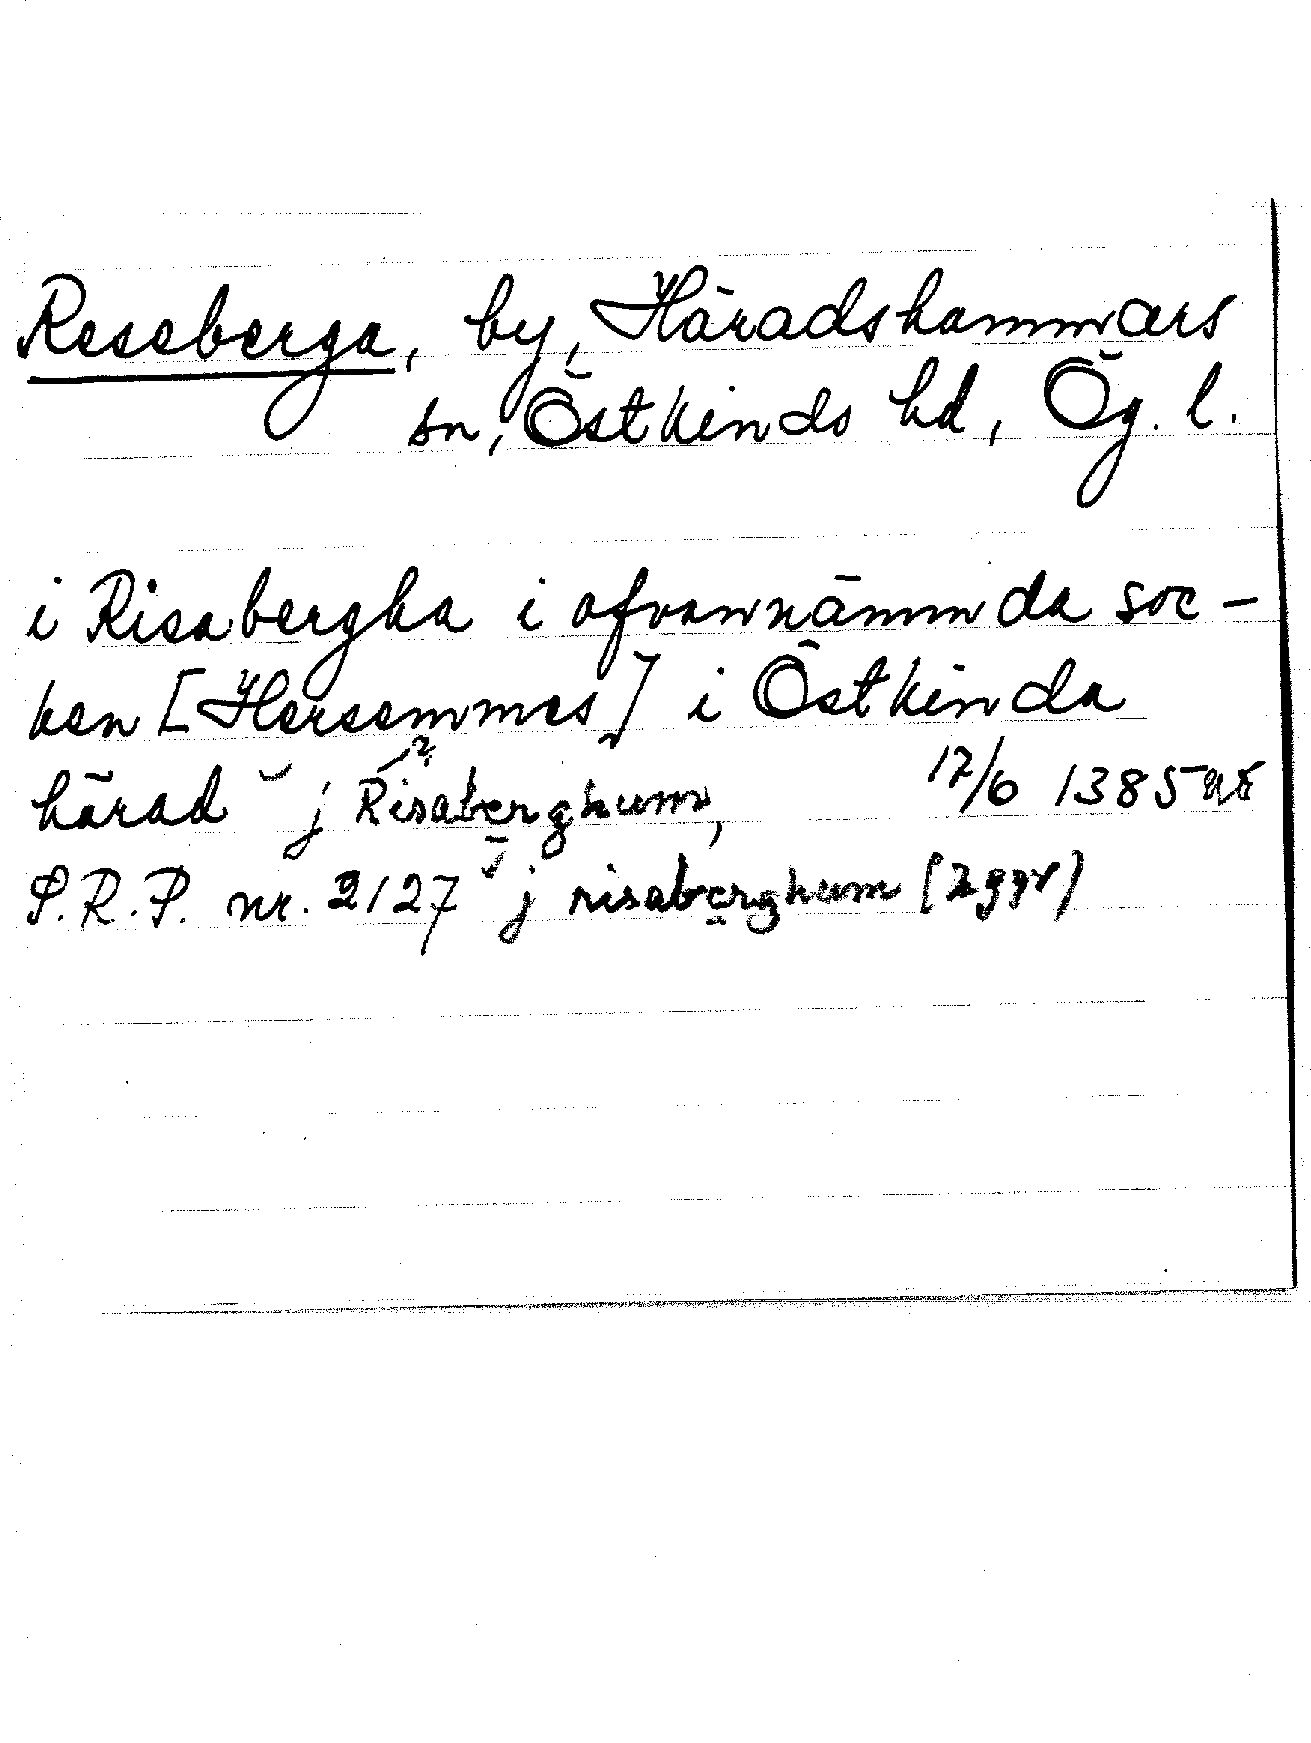 Reseberga, by, Häradshammars
sn, Östkinds hd, Ög. l.
i Risabergha i ofvannämnda soc-
ken [Hersammes] i Östkinda
härad j Risaberghum, 17/6 1385
S.R.P. nr. 2127 j risaberghum (2 ggr)